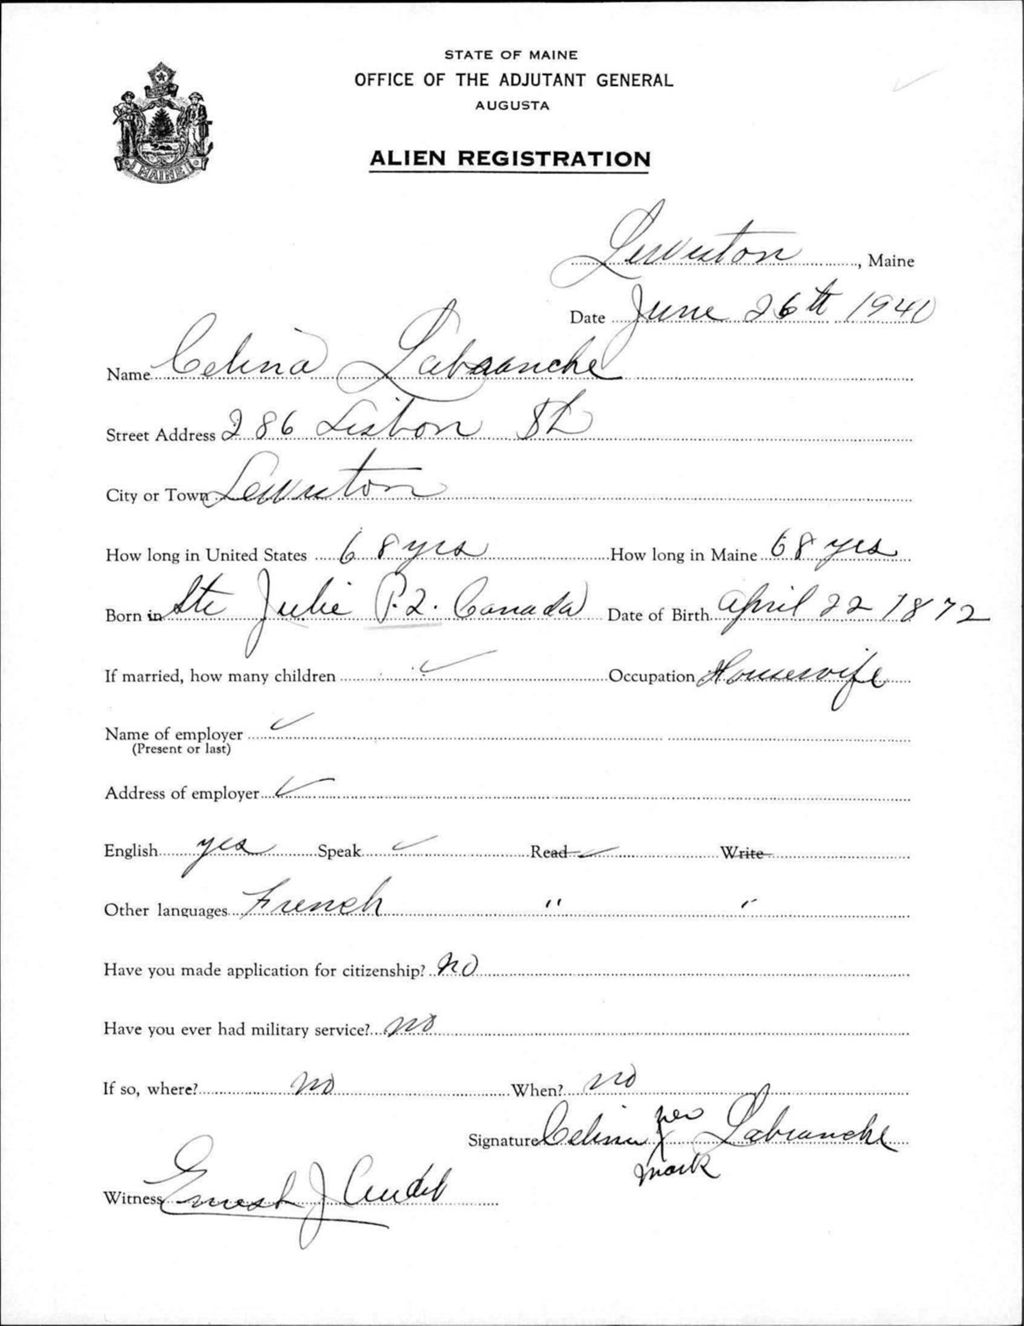 STATE OF MAINE
OFFICE OF THE ADJUTANT GENERAL
AUGUSTA
MAINE
ALIEN REGISTRATION
Lewiston, Maine
Date June 26th 1940
Name Celina Labranche
Street Address 286 Lisbon St
City or Town Lewiston
How long in United States 68 yrs How long in Maine 68 yrs
Born in Ste Julie P.Q. Canada Date of Birth April 22 1872
If married, how many children ✓ Occupation Housewife
Name of employer ✓
(Present or last)
Address of employer ✓
English yes Speak ✓ Read ✓ Write
Other languages French " "
Have you made application for citizenship? no
Have you ever had military service? no
If so, where? no When? no
Signature Celina per X mark Labranche
Witness Ernest J